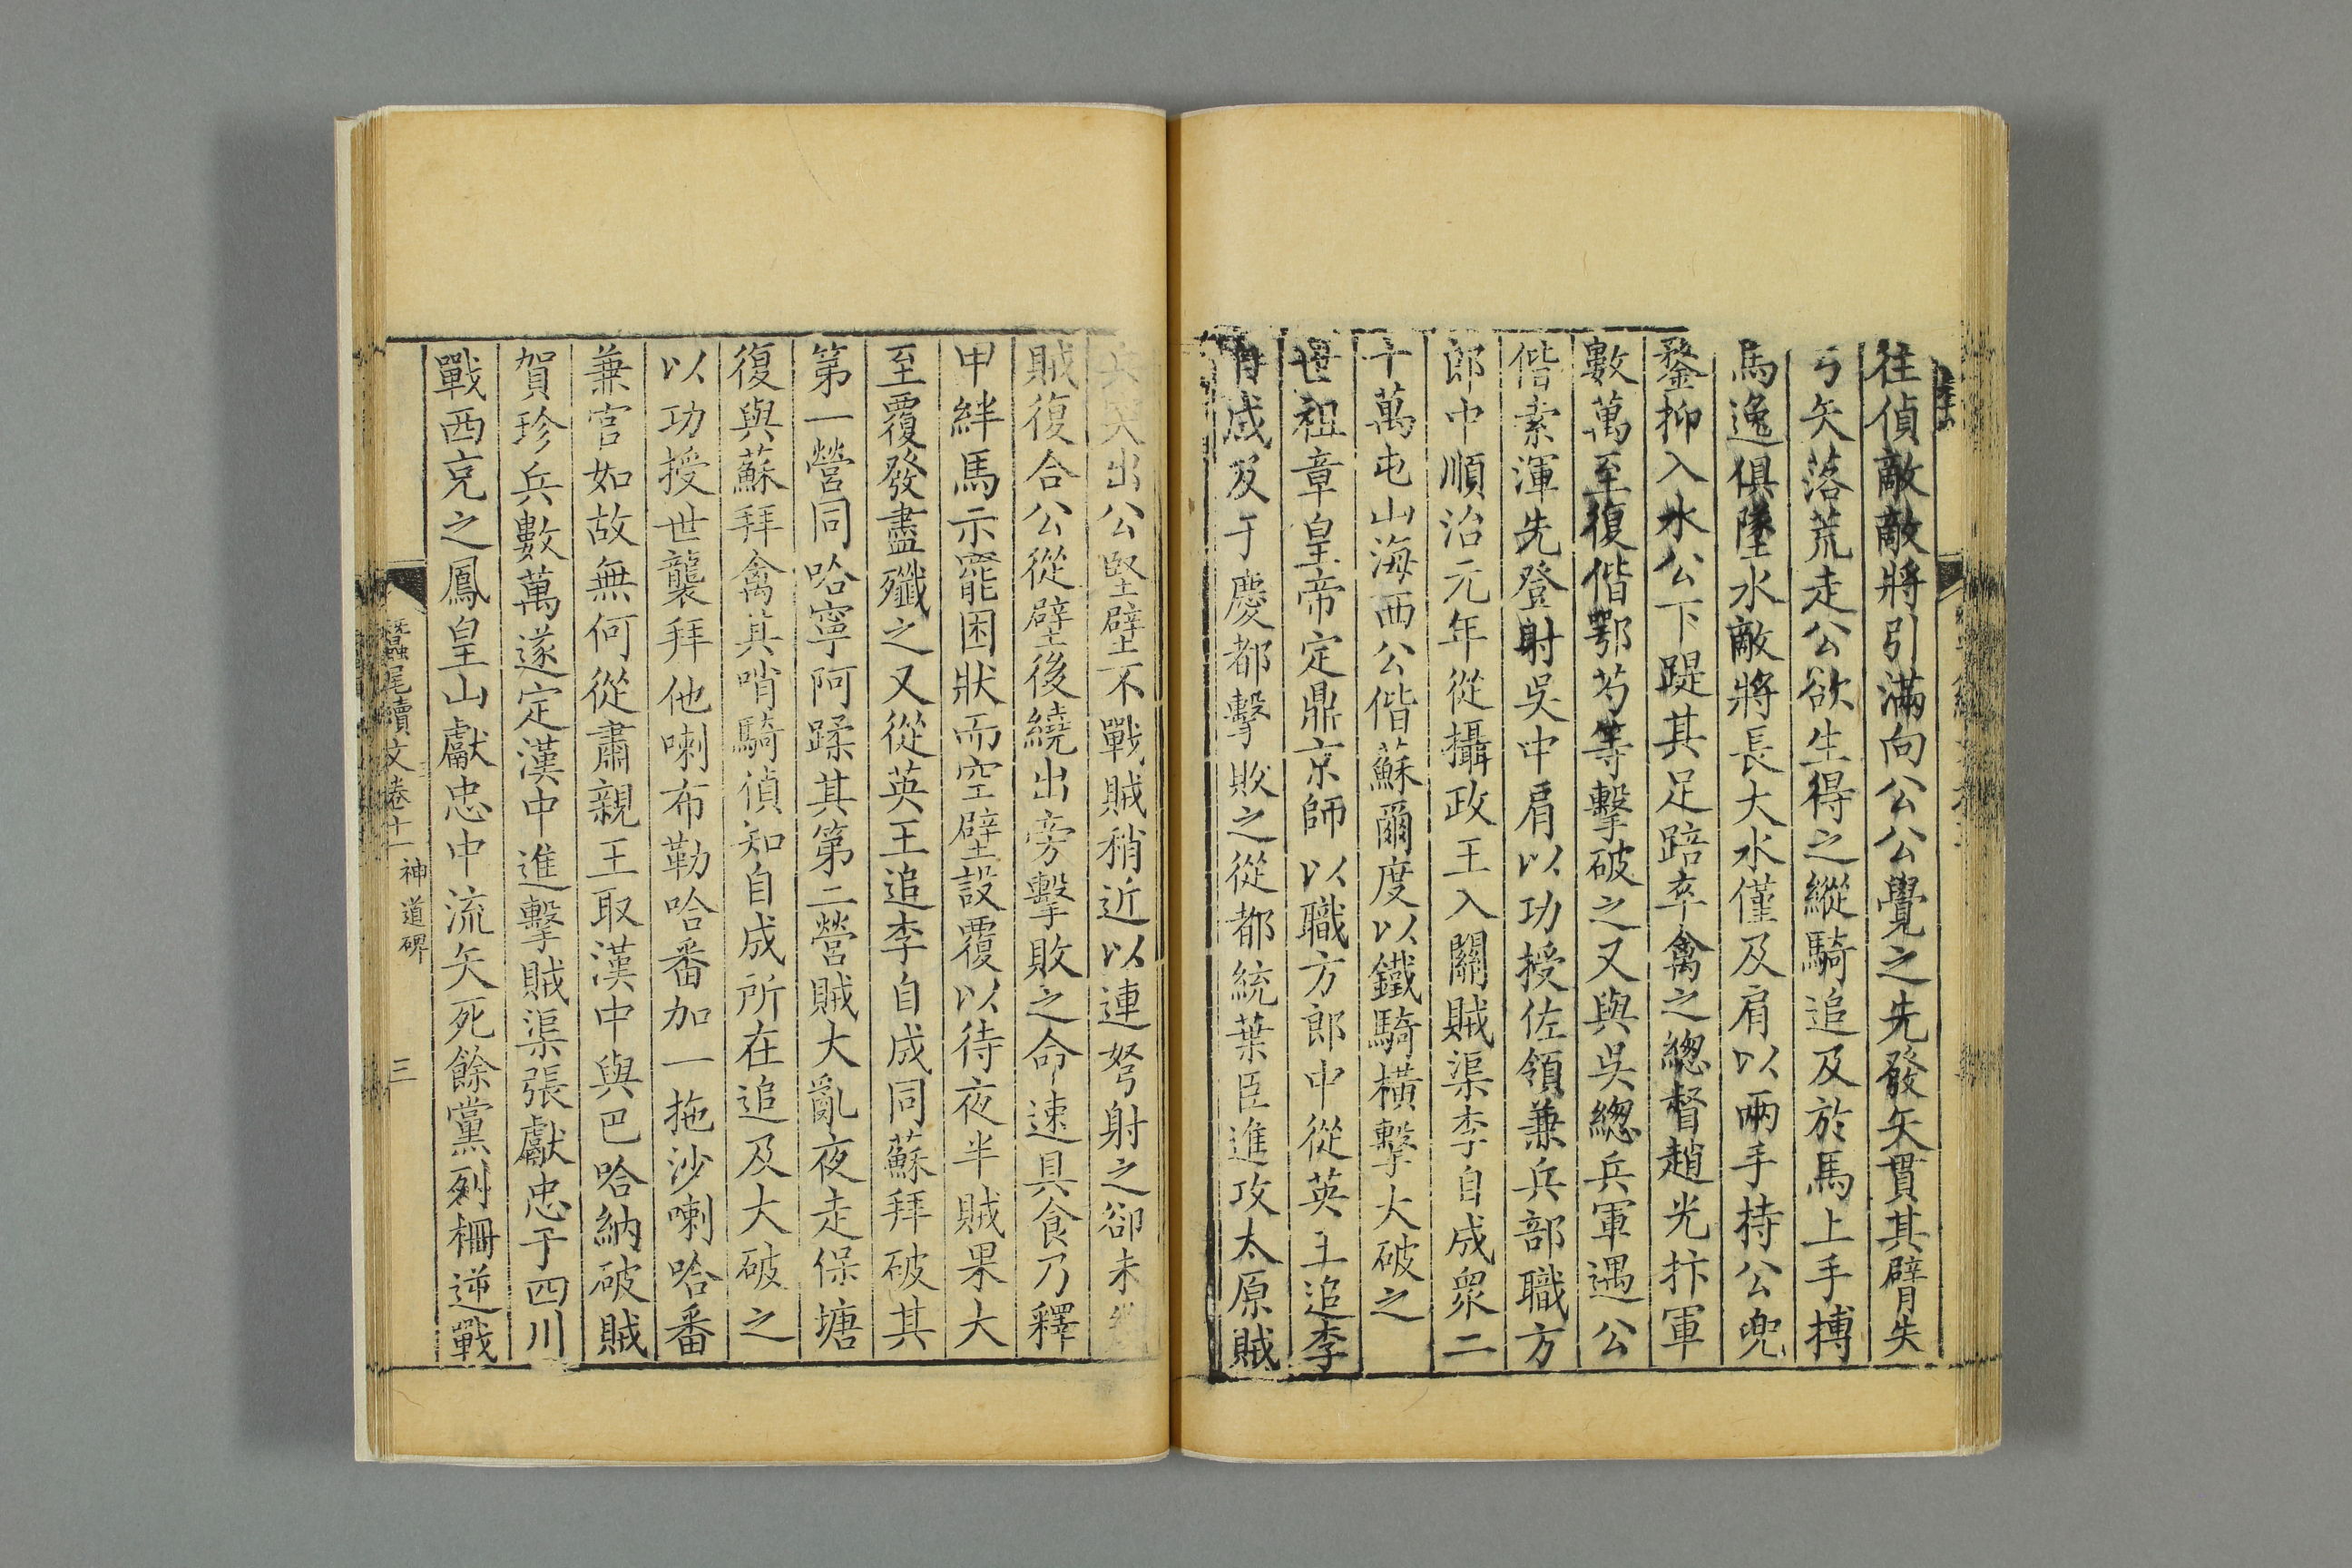 往偵敵敵將引滿向公公覺之先發矢貫其臂失
弓矢落荒走公欲生得之縱騎追及於馬上手搏
馬逸俱墜水敵將長大水僅及肩以兩手持公兜
鍪抑入水公下踶其足踣卒禽之緫督趙光抃軍
數萬至復偕鄂芍等擊破之又與吳緫兵軍遇公
偕索渾先登射吳中肩以功授佐領兼兵部職方
郎中順治元年從攝政王入關賊渠李自成眾二
十萬屯山海西公偕蘇爾度以鐵騎橫擊大破之
世祖章皇帝定鼎京師以職方郎中從英王追李
自成及于慶都擊敗之從都統葉臣進攻太原賊
兵突出公堅壁不戰賊稍近以連弩射之卻未
賊復合公從壁後繞出旁擊敗之命速具食乃釋
甲絆馬示罷困狀而空壁設覆以待夜半賊果大
至覆發盡殲之又從英王追李自成同蘇拜破其
第一營同哈寧阿蹂其第二營賊大亂夜走保塘
復與蘇拜禽其哨騎偵知自成所在追及大破之
以功授世襲拜他喇布勒哈番加一拖沙喇哈番
兼官如故無何從肅親王取漢中與巴哈納破賊
賀珍兵數萬遂定漢中進擊賊渠張獻忠于四川
戰西克之鳳皇山獻忠中流矢死餘黨列柵逆戰
蠶尾續文卷十一 神道碑 三